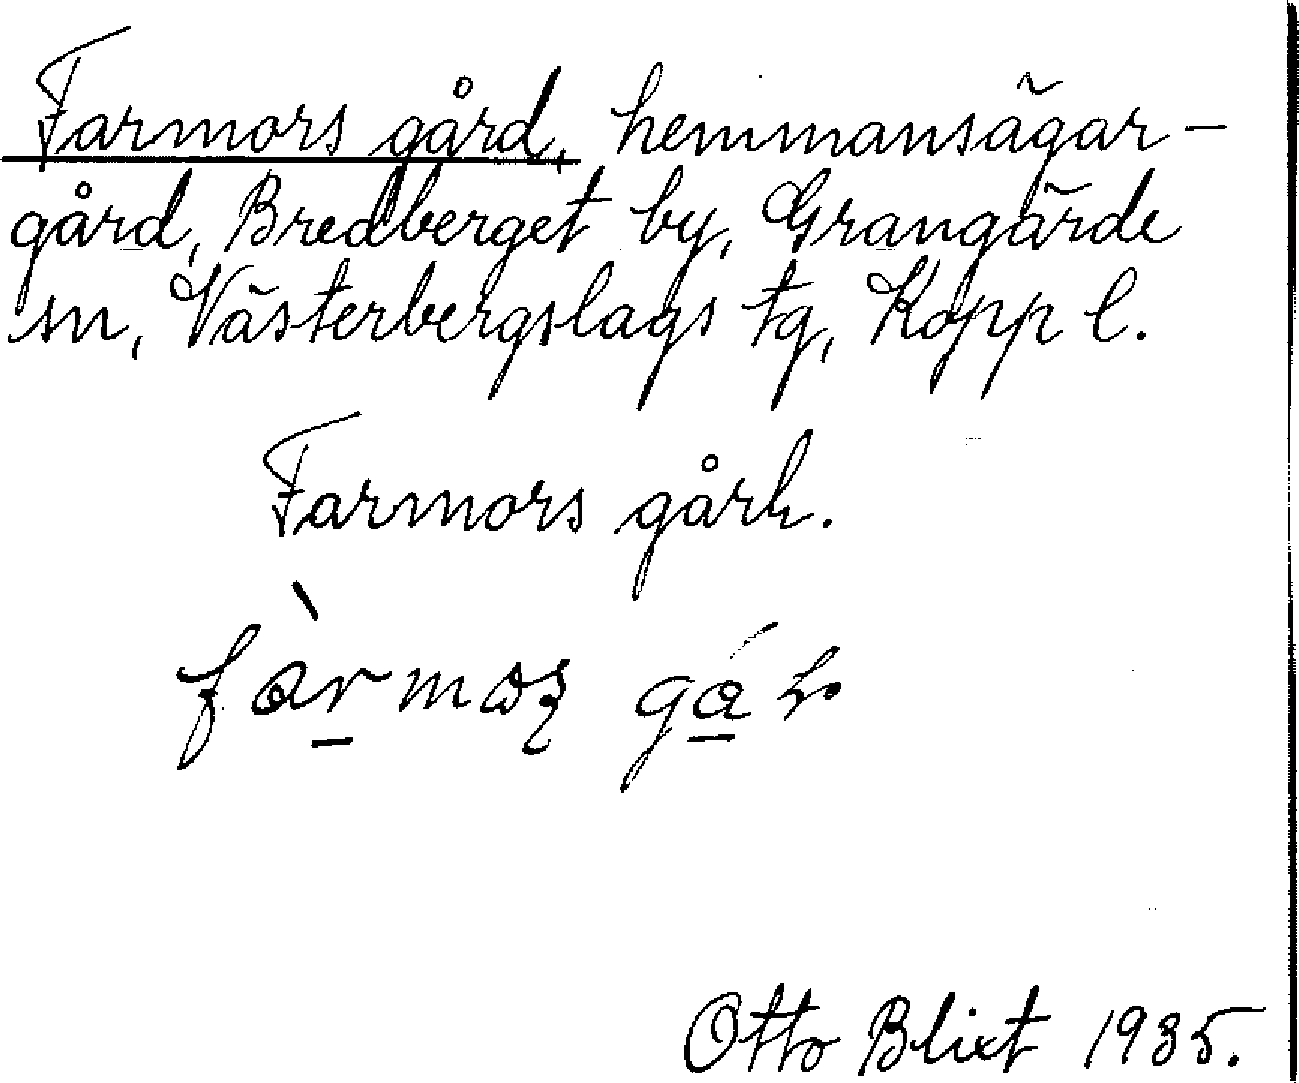 Farmors gård, hemmansägar-
gård, Bredberget by, Grangärde
sn, Västerbergslags tg, Kopp l.
Farmors gårh.
Otto Blixt 1935.